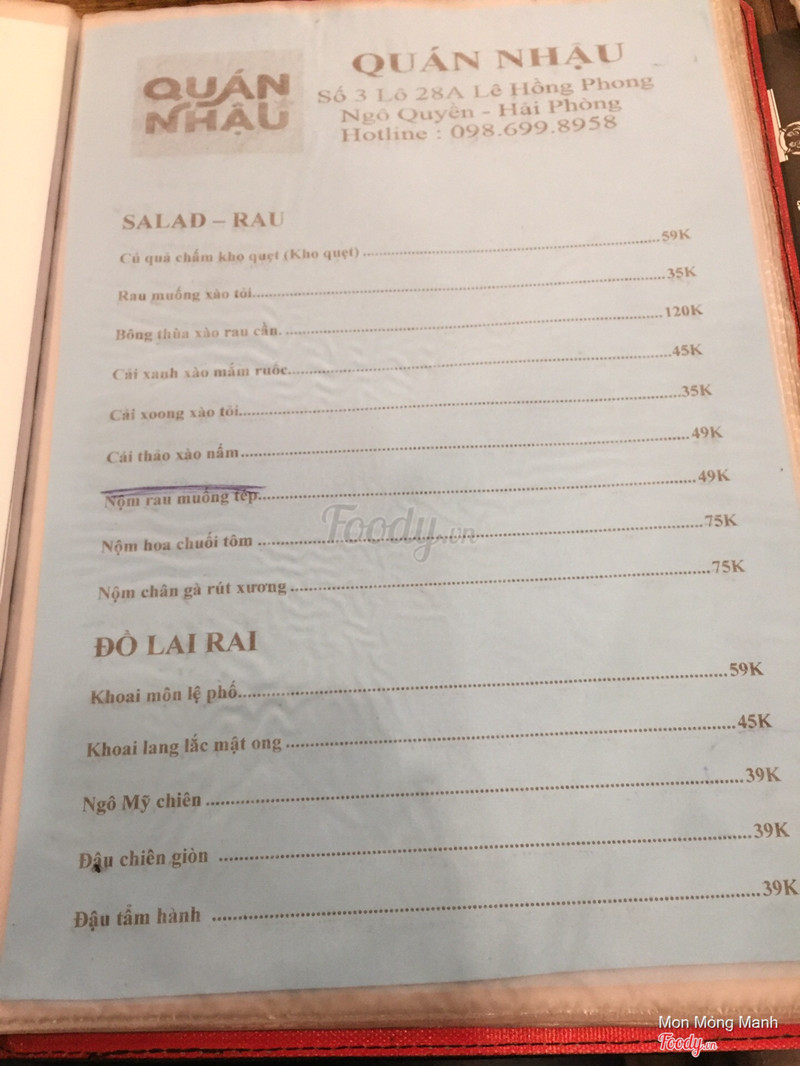 QUÁN
NHẬU
QUÁN NHẬU
Số 3 Lô 28A Lê Hồng Phong
Ngô Quyền - Hải Phòng
Hotline : 098.699.8958
SALAD – RAU
Củ quả chấm kho quẹt (Kho quẹt) 59K
Rau muống xào tỏi 35K
Bông thùa xào rau cần. 120K
Cải xanh xào mắm ruốc 45K
Cải xoong xào tỏi 35K
Cải thảo xào nấm 49K
Nộm rau muống tép 49K
Nộm hoa chuối tôm 75K
Nộm chân gà rút xương 75K
ĐỒ LAI RAI
Khoai môn lệ phố 59K
Khoai lang lắc mật ong 45K
Ngô Mỹ chiên 39K
Đậu chiên giòn 39K
Đậu tẩm hành 39K
Foody.vn
Mon Mỏng Manh
Foody.vn